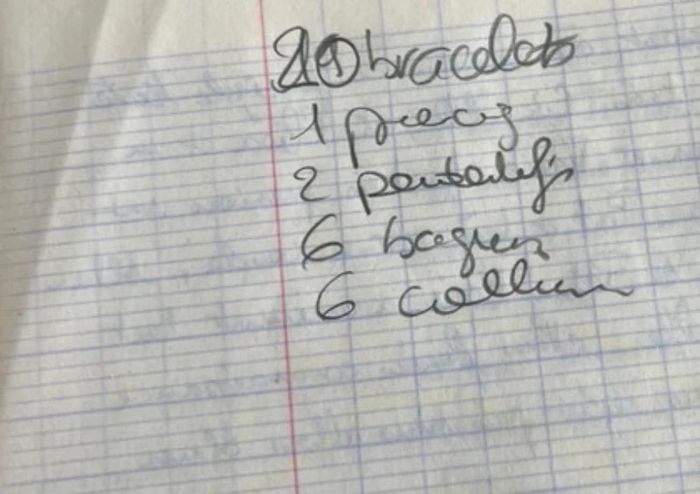 bracelets
1
2 pendentifs
6 bagues
6 colliers